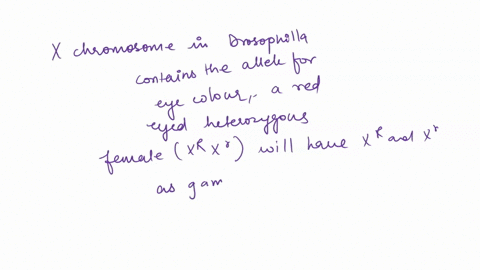 X chromosome in Drosophilla
contains the allele for
eye colour,. a red
eyed heterozygous
female (X^R X^r) will have X^R and X^r
as gam